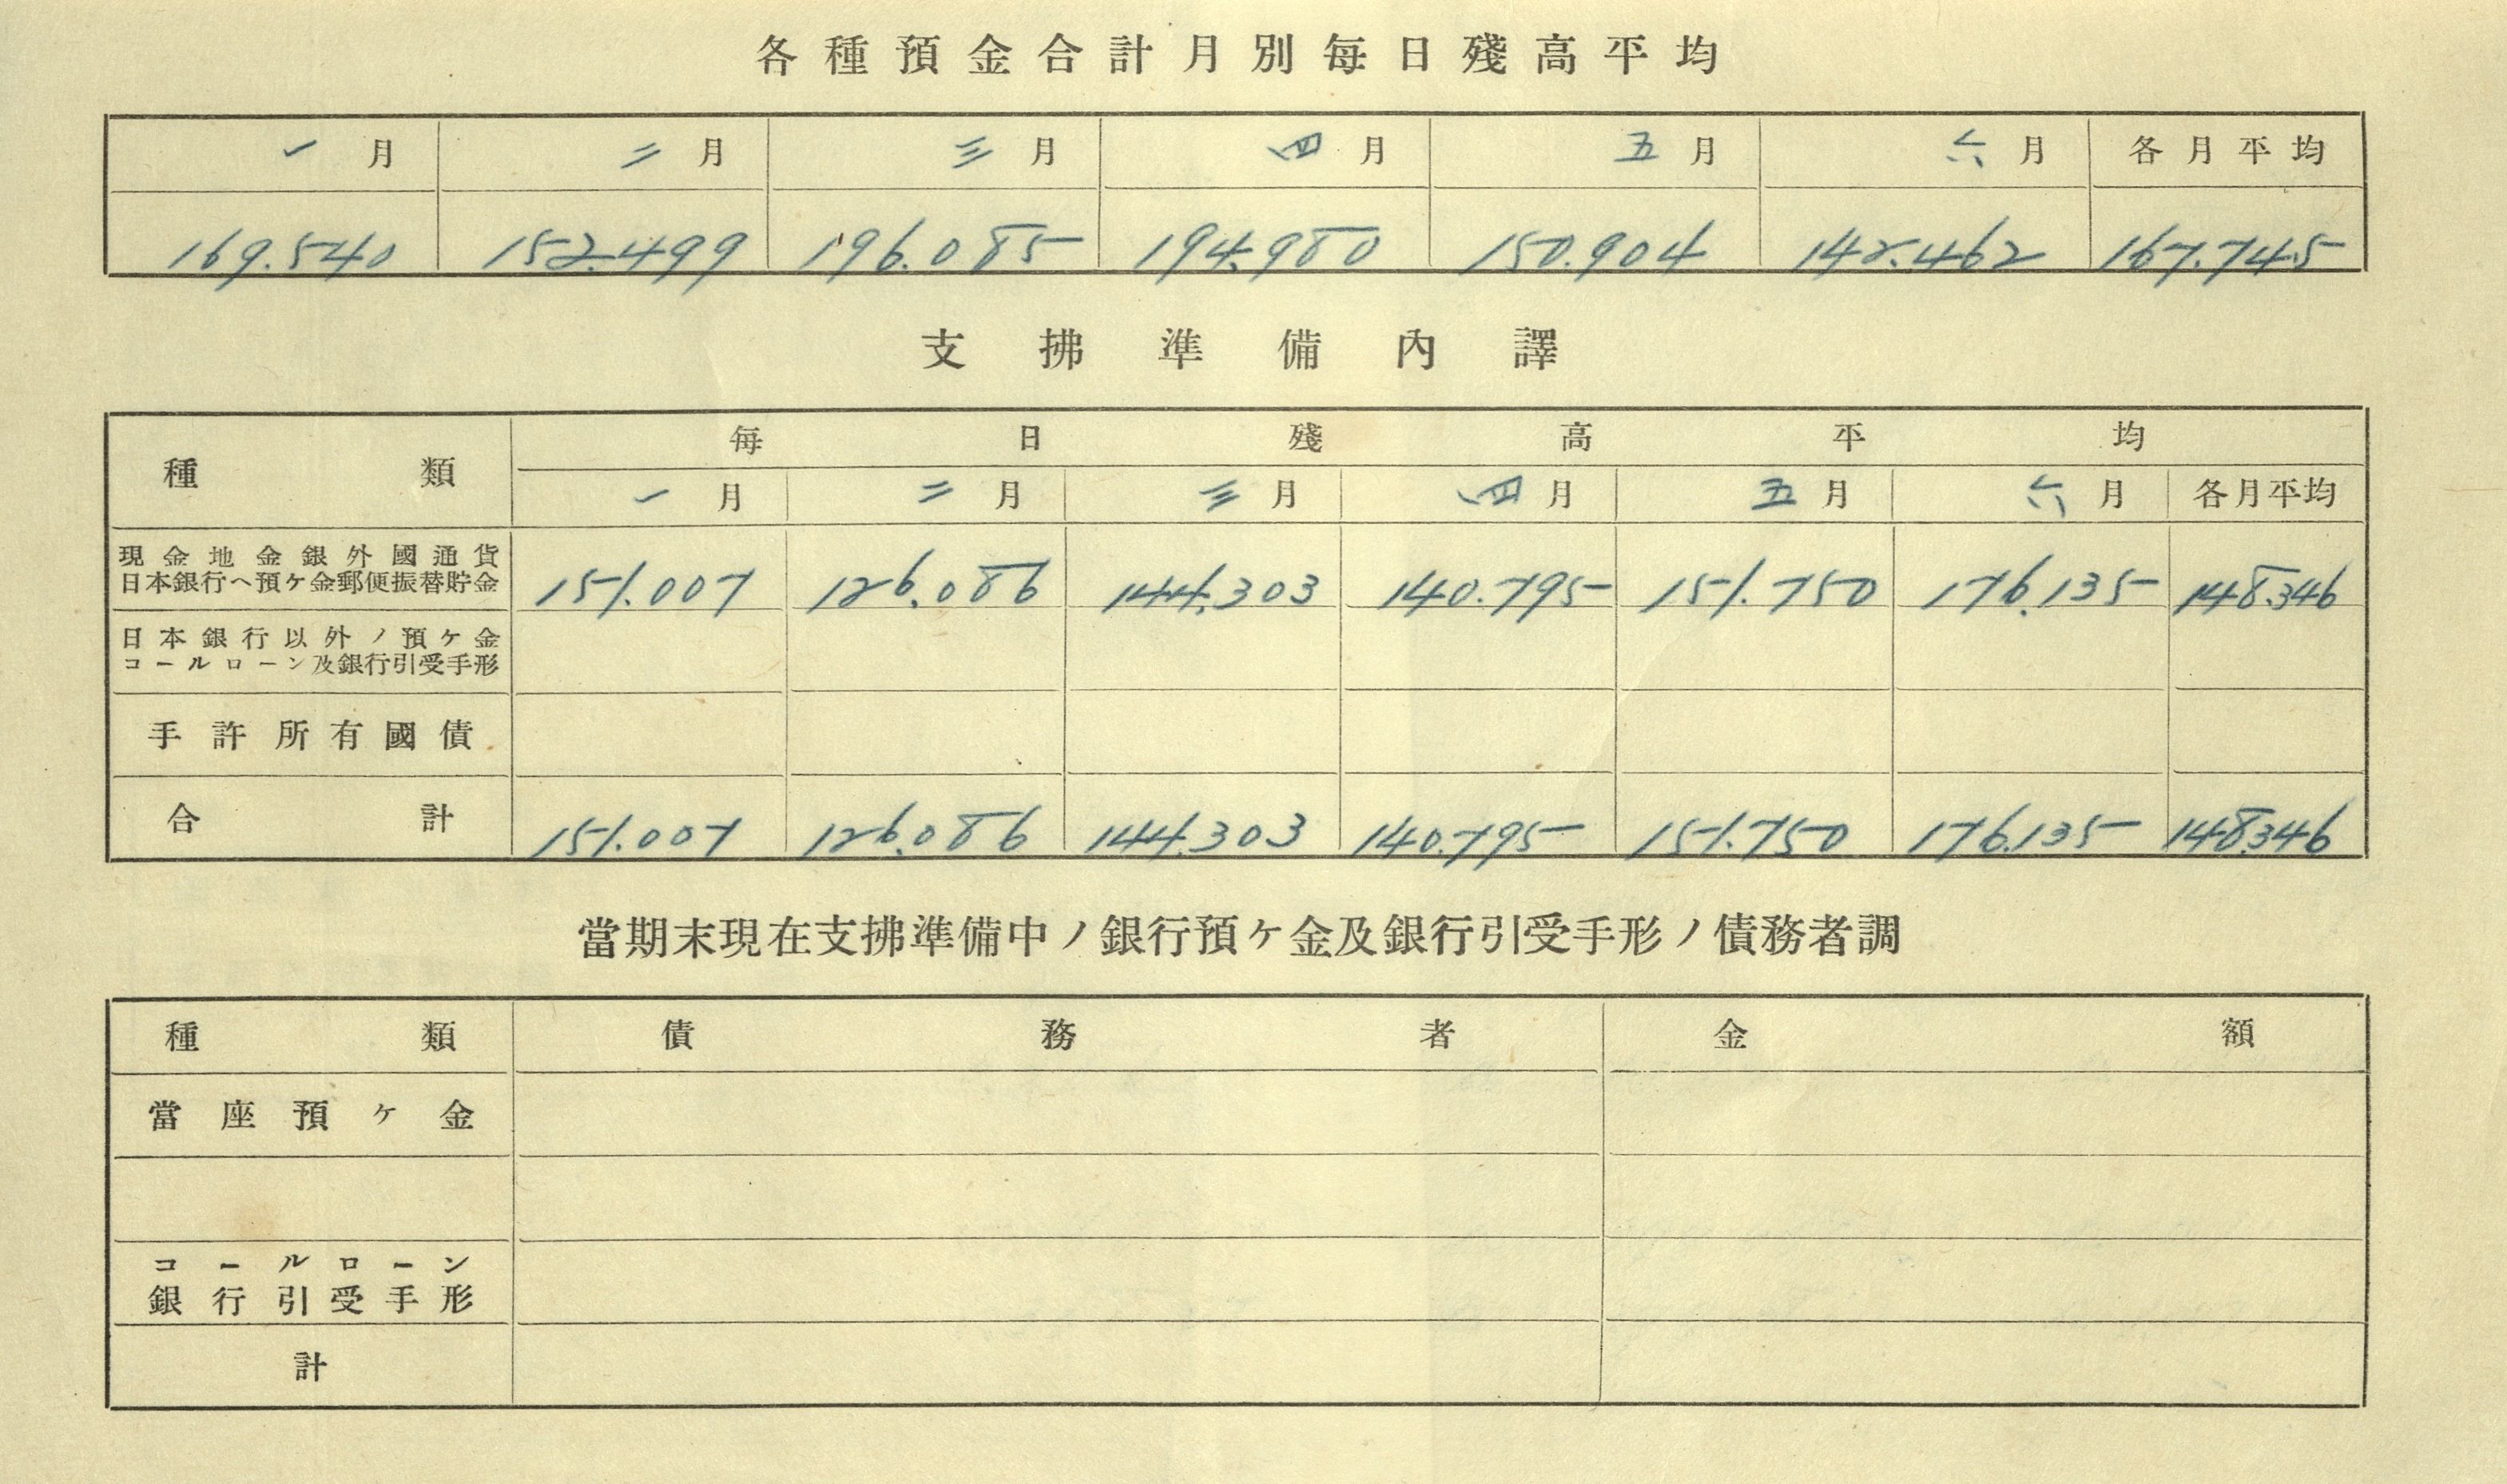 各種預金合計月別每日殘高平均
一月 二月 三月 四月 五月 六月 各月平均
169.540 152.499 196.085 194.980 150.904 142.462 167.745
支拂準備內譯
種類 每日殘高平均
一月 二月 三月 四月 五月 六月 各月平均
現金地金銀外國通貨
日本銀行ヘ預ケ金郵便振替貯金 151.007 126.086 144.303 140.795 151.750 176.135 148.346
日本銀行以外ノ預ケ金
コールローン及銀行引受手形
手許所有國債
合計 151.007 126.086 144.303 140.795 151.750 176.135 148.346
當期末現在支拂準備中ノ銀行預ケ金及銀行引受手形ノ債務者調
種類 債務者 金額
當座預ケ金
コールローン
銀行引受手形
計